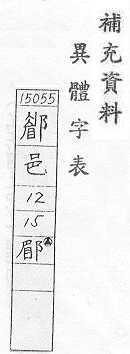 補充資料
異體字表
15055
邑
12
15
郿